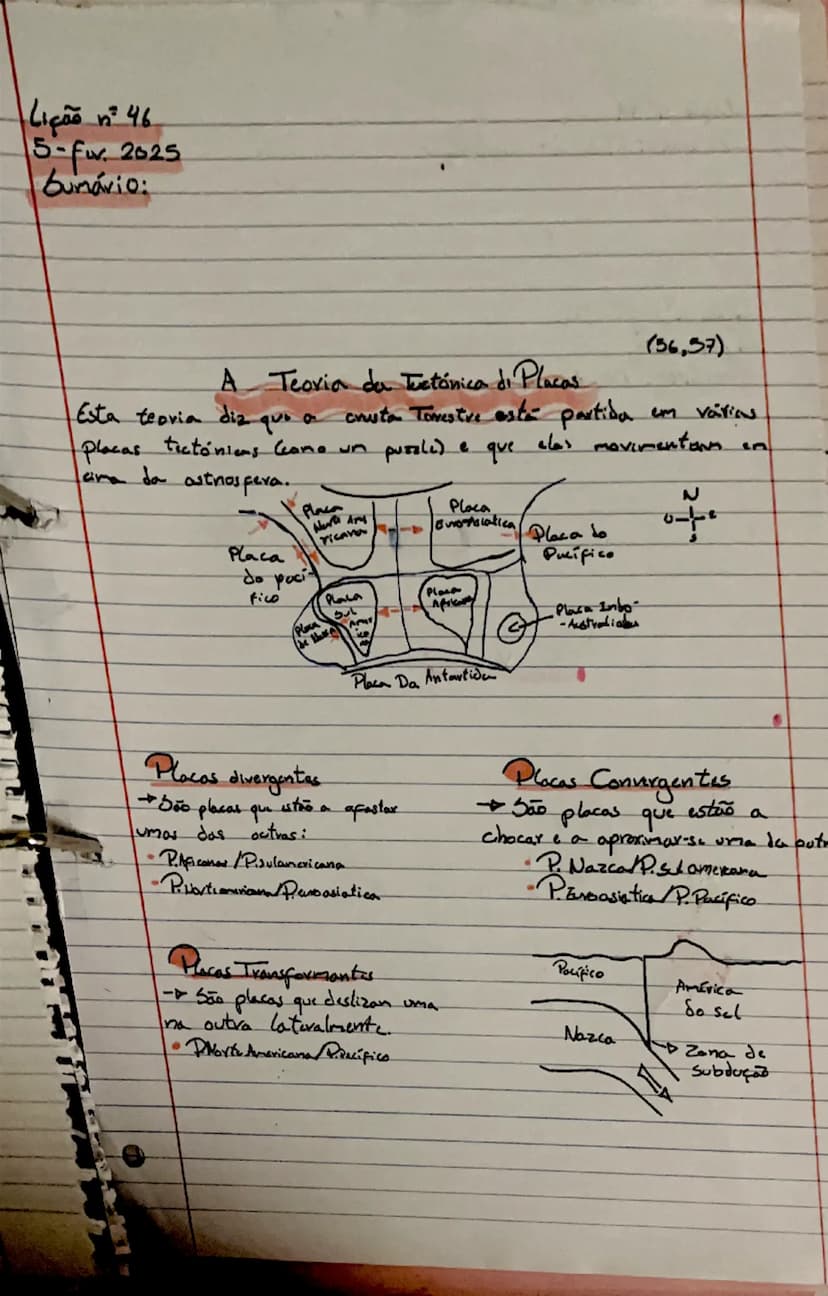 Lição nº 46
5-Fev. 2025
Sumário:
(56,57)
A Teoria da Tectónica de Placas
Esta teoria diz que a crusta Terrestre está partida em várias
placas tectónicas (como um puzzle) e que elas movimentam em
cima da astnosfera.
N
O E
S
Placa
Norte Ame
ricana
Placa
Euroasiatica
Placa do
Pacífico
Placa
do pací-
fico
Placa
Sul
Amer
ica
na
Placa
Africana
Placa
de Nazca
Placa Indo-
-Australiana
Placa Da Antartida
Placas divergentes
→ São placas que estão a afastar
umas das outras:
• P.Africana/P.sulamericana
• P.Norteamericana/P.euroasiatica
Placas Convergentes
→ São placas que estão a
chocar e a aproximar-se uma da outr
• P. Nazca/P.sulamericana
• P.Euroasiatica/P.Pacífico
Placas Transformantes
→ São placas que deslizam uma
na outra lateralmente.
• P.Norte Americana/P.Pacífico
Pacífico
América
do sul
Nazca
→ Zona de
subdução